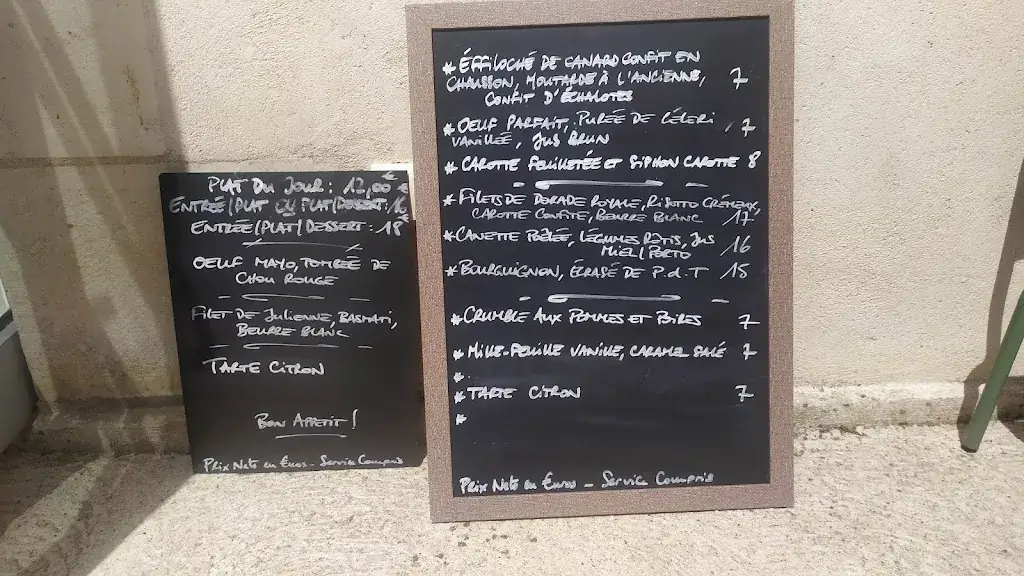 PLAT DU JOUR : 12,00 €
ENTRÉE/PLAT OU PLAT/DESSERT : 16
ENTRÉE/PLAT/DESSERT : 18€
OEUF MAYO, TOMBÉE DE
CHOU ROUGE
FILET DE JULIENNE BASMATI,
BEURRE BLANC
TARTE CITRON
BON APPETIT !
Prix Nets en Euros - Service Compris
* ÉFFILOCHÉ DE CANARD CONFIT EN
CHAUSSON, MOUTARDE À L'ANCIENNE, 7
CONFIT D'ÉCHALOTES
* OEUF PARFAIT, PURÉE DE CÉLERI 7
VANILLÉE, JUS BRUN
* CAROTTE FEUILLETÉE ET SIPHON CAROTTE 8
* FILETS DE DORADE ROYALE, RISOTTO CRÉMEUX,
CAROTTE CONFITE, BEURRE BLANC 17
* CANETTE POÊLÉE, LÉGUMES RÔTIS, JUS
MIEL/PORTO 16
* BOURGUIGNON, ÉCRASÉ DE P.d.T 15
* CRUMBLE AUX POMMES ET POIRES 7
* MILLE-FEUILLE VANILLE, CARAMEL SALÉ 7
*
* TARTE CITRON 7
*
Prix Nets en Euros - Service Compris